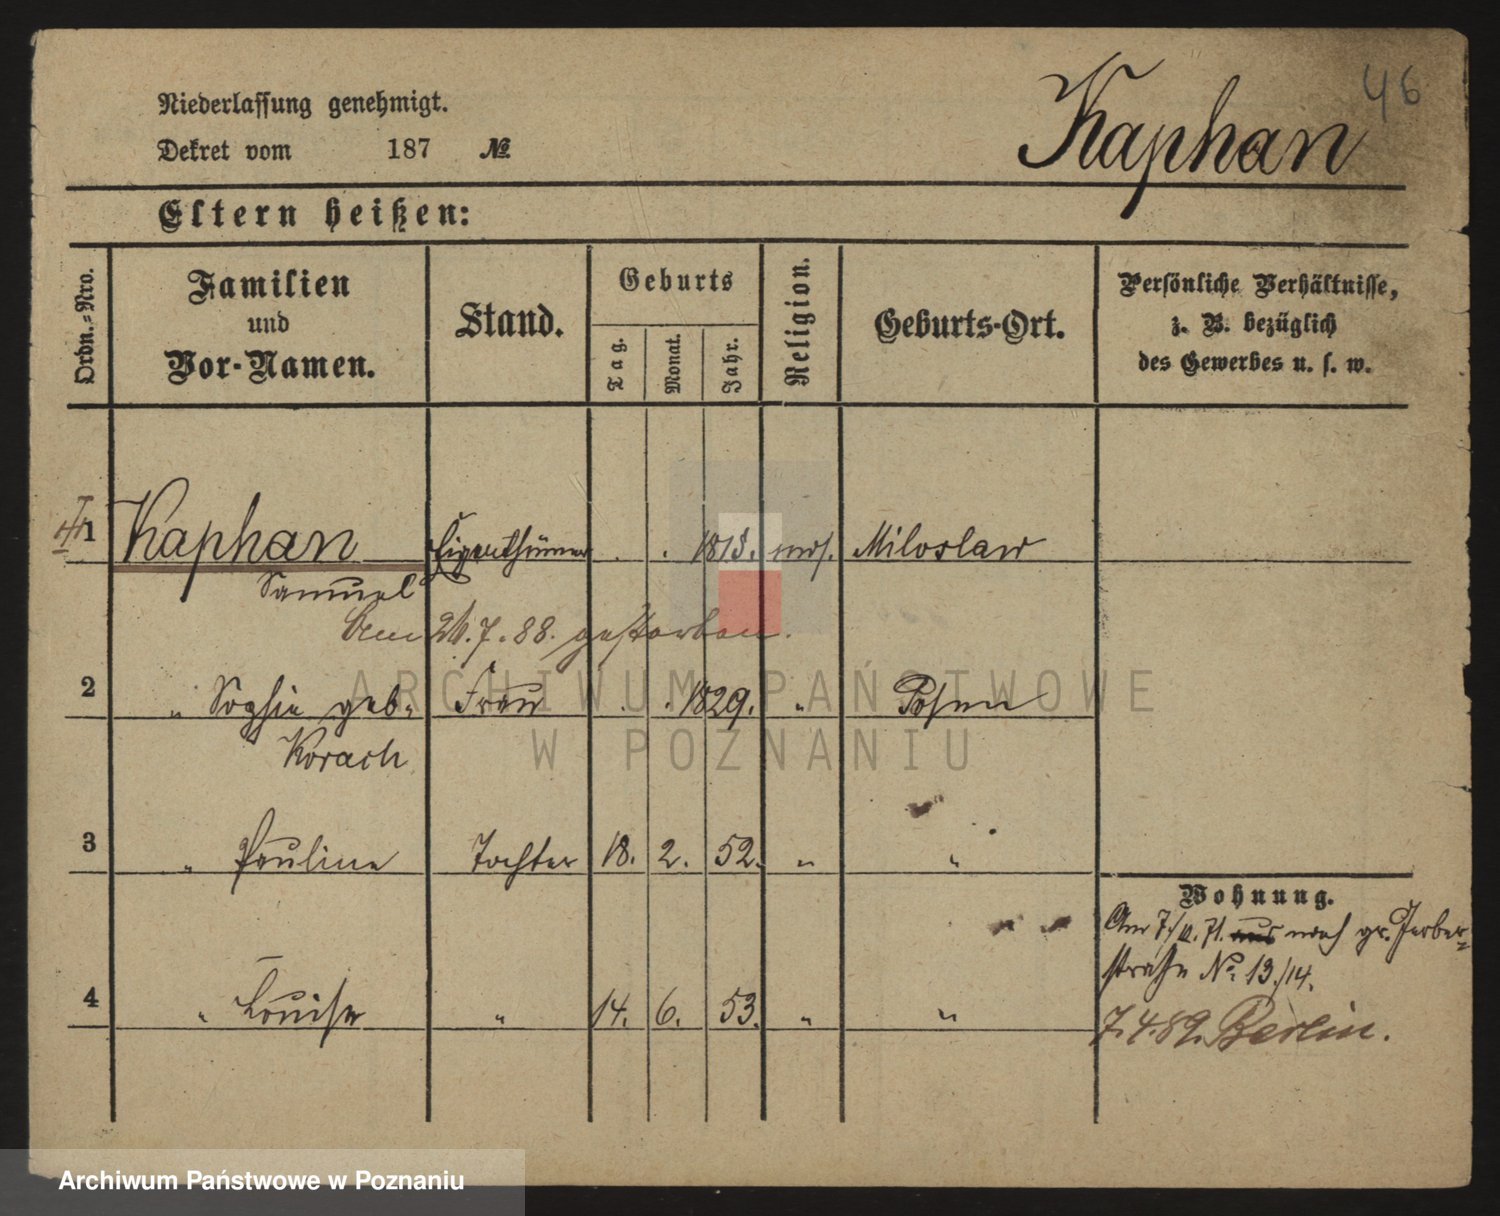 46
Kaphan
Niederlassung genehmigt.
Dekret vom 187 №
Eltern heißen:
Ordn.-Nro.
Familien
und
Vor-Namen.
Stand.
Geburts
Tag.
Monat.
Jahr.
Religion.
Geburts-Ort.
Persönliche Verhältnisse,
z. B. bezüglich
des Gewerbes u. s. w.
1 Kaphan Eigenthümer . . 1818. mos. Miloslaw
Samuel
Am 26.7.88. gestorben.
2 " Sophie geb. Frau . . 1829. " Posen
Korach
3 " Pauline Tochter 18. 2. 52. " "
4 " Louise " 14. 6. 53. " "
Wohnung.
Am 7./ 71. nach gr. Gerber-
straße No. 13./14.
7.4.89. Berlin.
ARCHIWUM PAŃSTWOWE
W POZNANIU
Archiwum Państwowe w Poznaniu